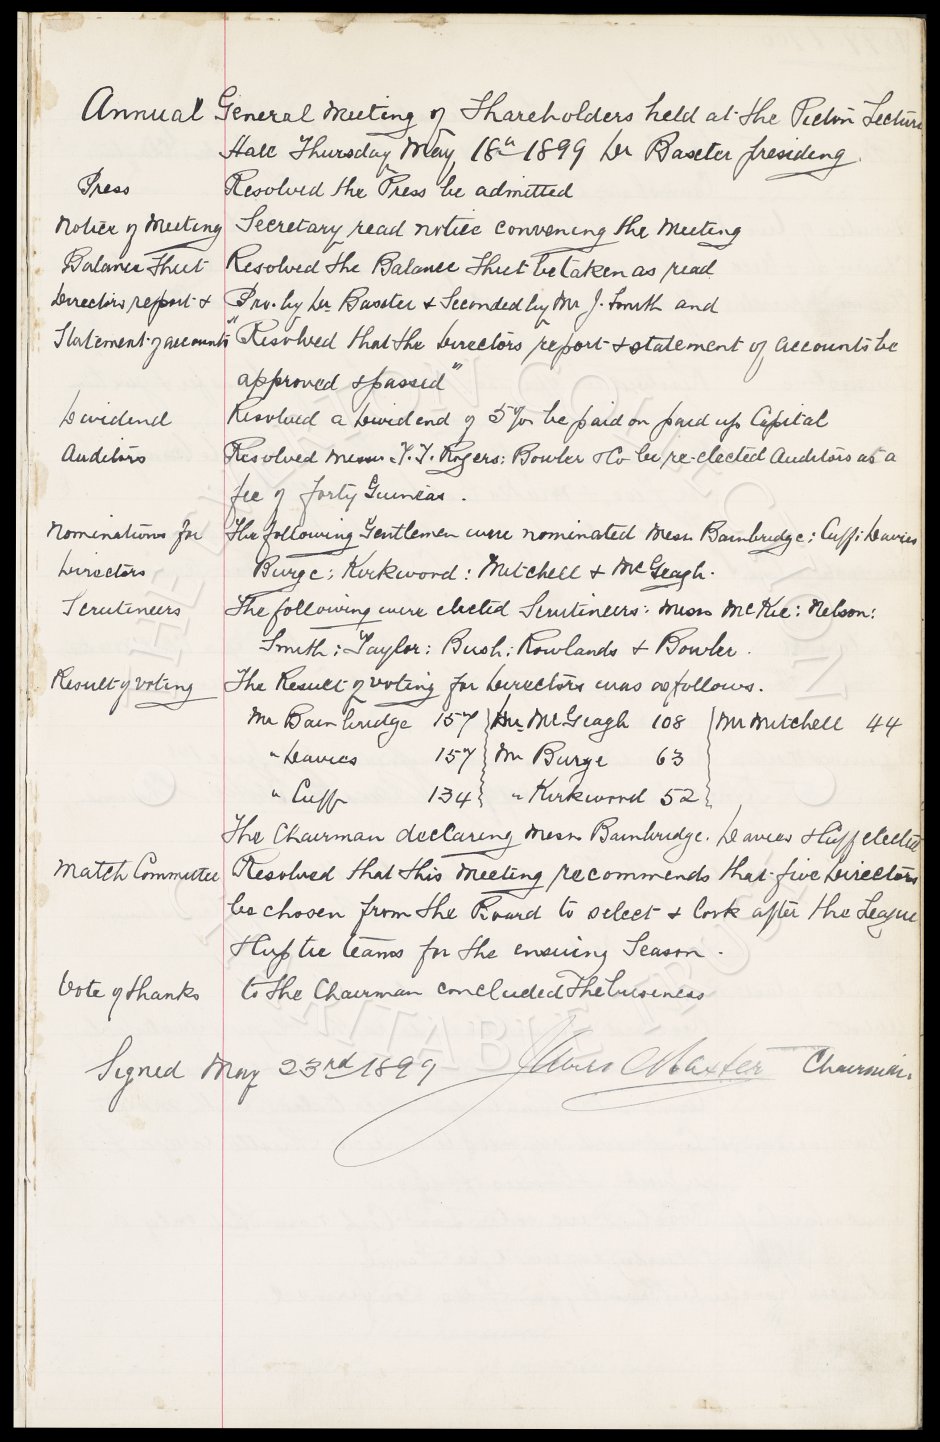 Annual General Meeting of Shareholders held at the Picton Lecture
Hall Thursday May 18th 1899 Dr Baxter presiding.
Press Resolved the Press be admitted
Notice of Meeting Secretary read notice convening the Meeting
Balance Sheet Resolved the Balance Sheet be taken as read
Directors report & Pro. by Dr Baxter & Seconded by Mr J. Smith and
Statement of accounts "Resolved that the Directors report & statement of accounts be
approved & passed"
Dividend Resolved a Dividend of 5% be paid on paid up Capital
Auditors Resolved Messrs. T. T. Rogers: Bowler & Co be re-elected Auditors at a
fee of forty Guineas.
Nominations for The following Gentlemen were nominated Messrs Bainbridge: Cuff: Davies
Directors Burge: Kirkwood: Mitchell & McGeagh.
Scrutineers The following were elected Scrutineers: Messrs McKie: Nelson:
Smith: Taylor: Bush: Rowlands & Bowler.
Result of voting The Result of voting for Directors was as follows.
Mr Bainbridge 157 Dr McGeagh 108 Mr Mitchell 44
" Davies 157 Mr Burge 63
" Cuff 134 " Kirkwood 52
The Chairman declaring Messrs Bainbridge. Davies & Cuff elected
Match Committee Resolved that this Meeting recommends that five Directors
be chosen from the Board to select & look after the League
& Cup tie teams for the ensuing Season.
Vote of thanks to the Chairman concluded the business
Signed May 23rd 1899 James C Baxter Chairman.
THE EVERTON COLLECTION
CHARITABLE TRUST